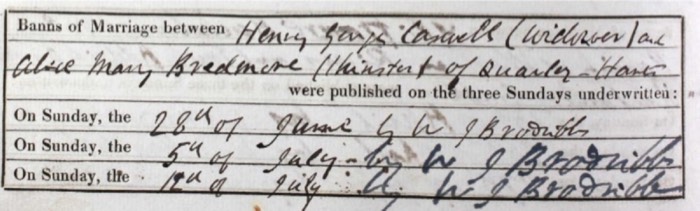 Banns of Marriage between Henry George Caswell (widower) and
Alice Mary Bradmore (Spinster) of Quarley - Hants
were published on the three Sundays underwritten:
On Sunday, the 28th of June by W J Brodribb
On Sunday, the 5th of July by W J Brodribb
On Sunday, the 12th of July by W J Brodribb